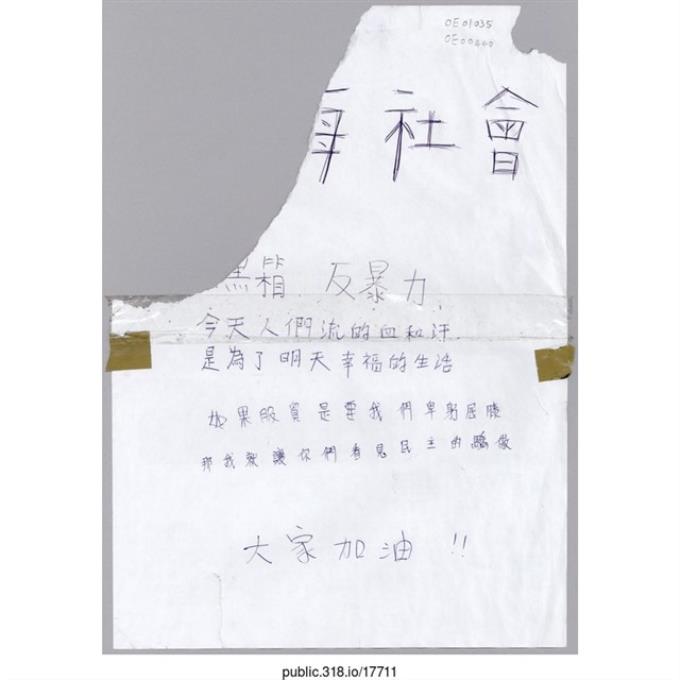 OE01035
OE00440
社會
黑箱 反暴力
今天人們流的血和汗
是為了明天幸福的生活
如果服貿是要我們卑躬屈膝
那我就讓你們看見民主的驕傲
大家加油 !!
public.318.io/17711